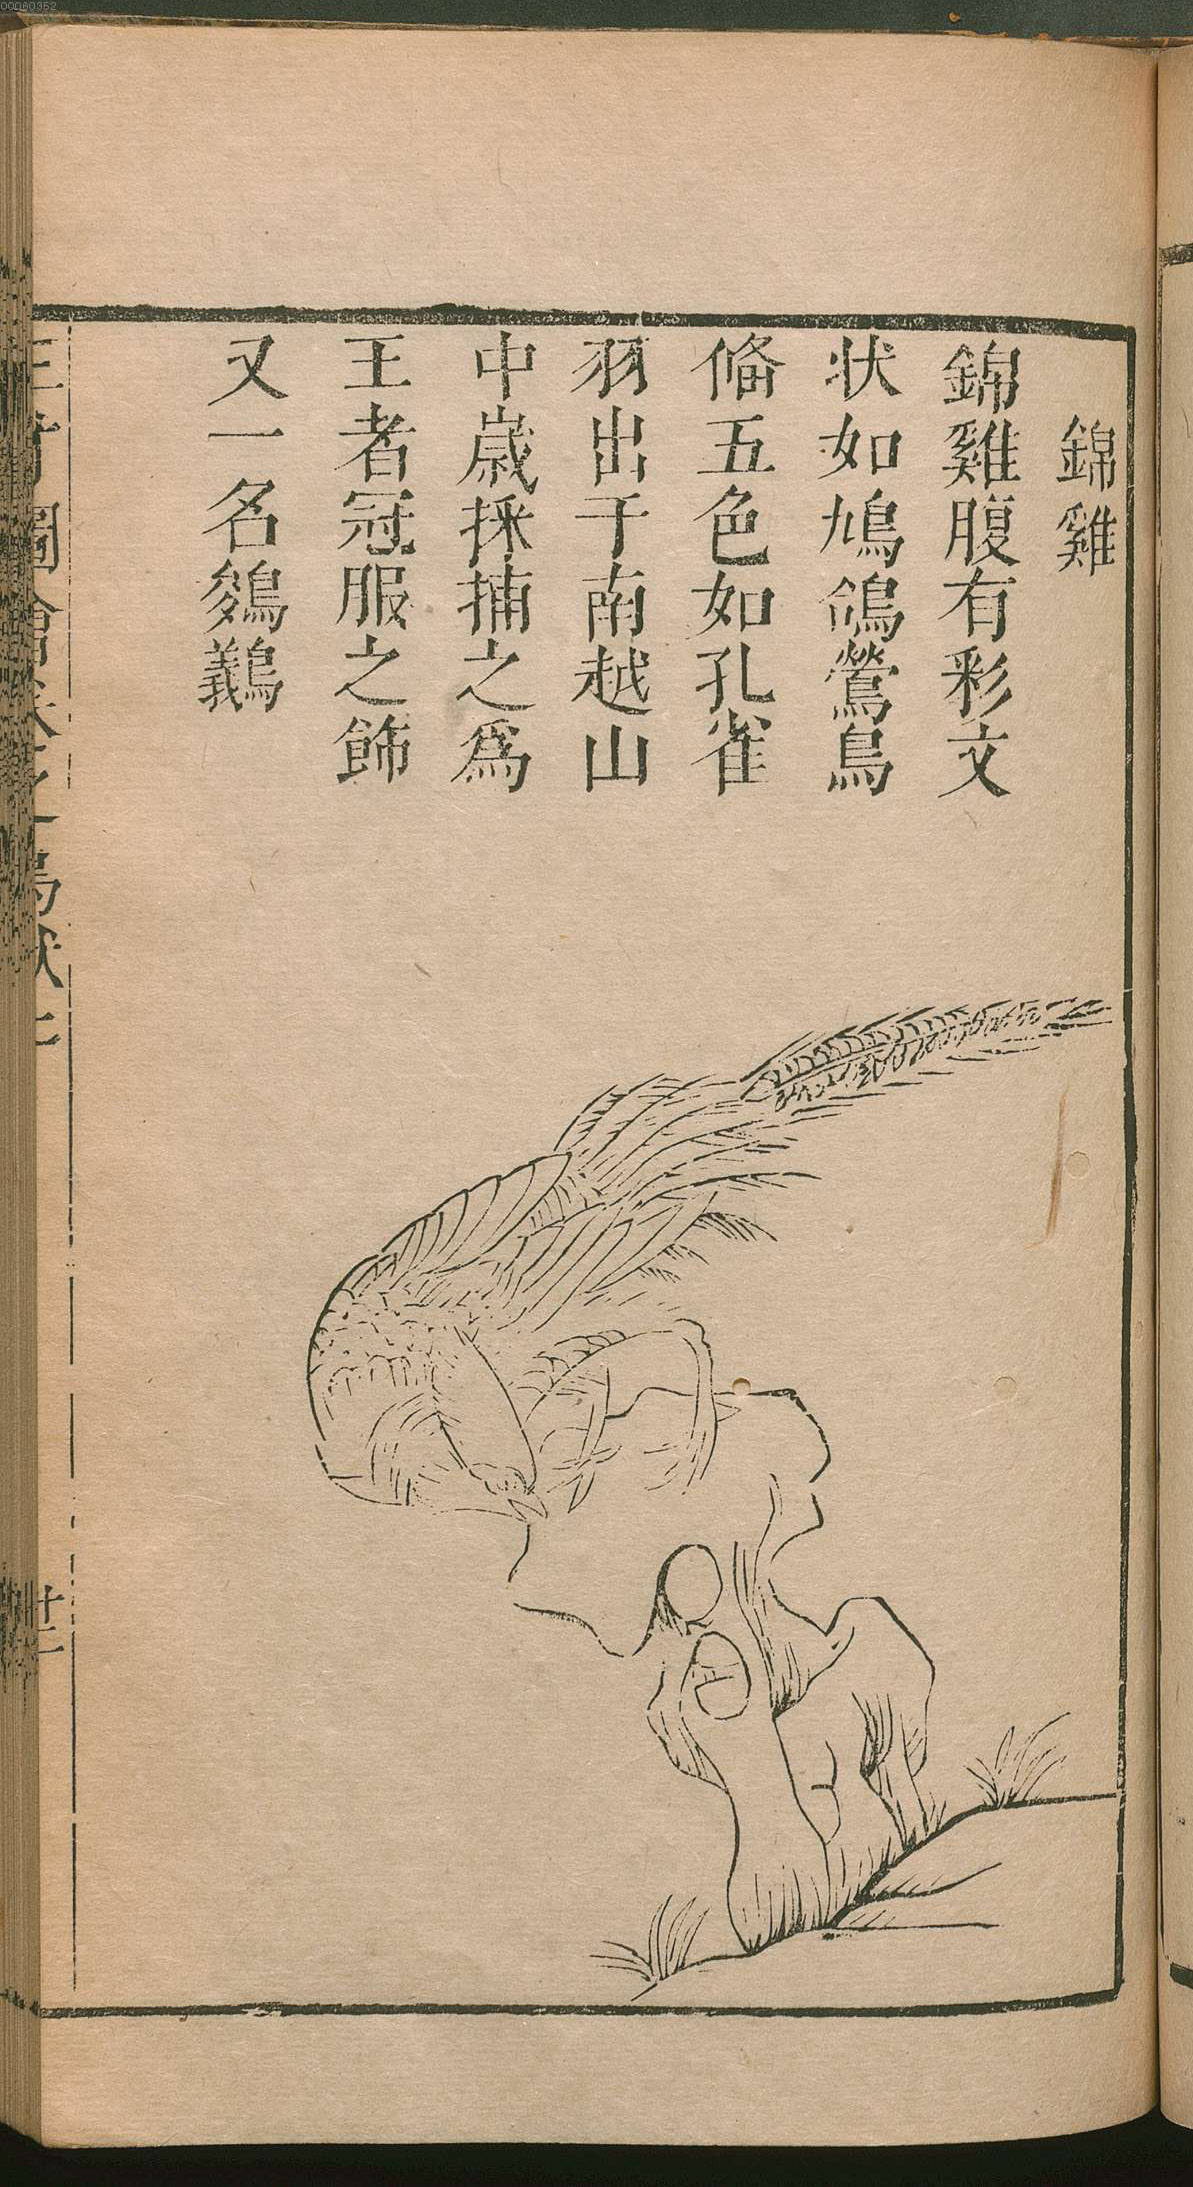 錦雞
錦雞腹有彩文
狀如鳩鴿鶯鳥
脩五色如孔雀
羽出于南越山
中歲採捕之爲
王者冠服之飾
又一名鵕鸃
00060352